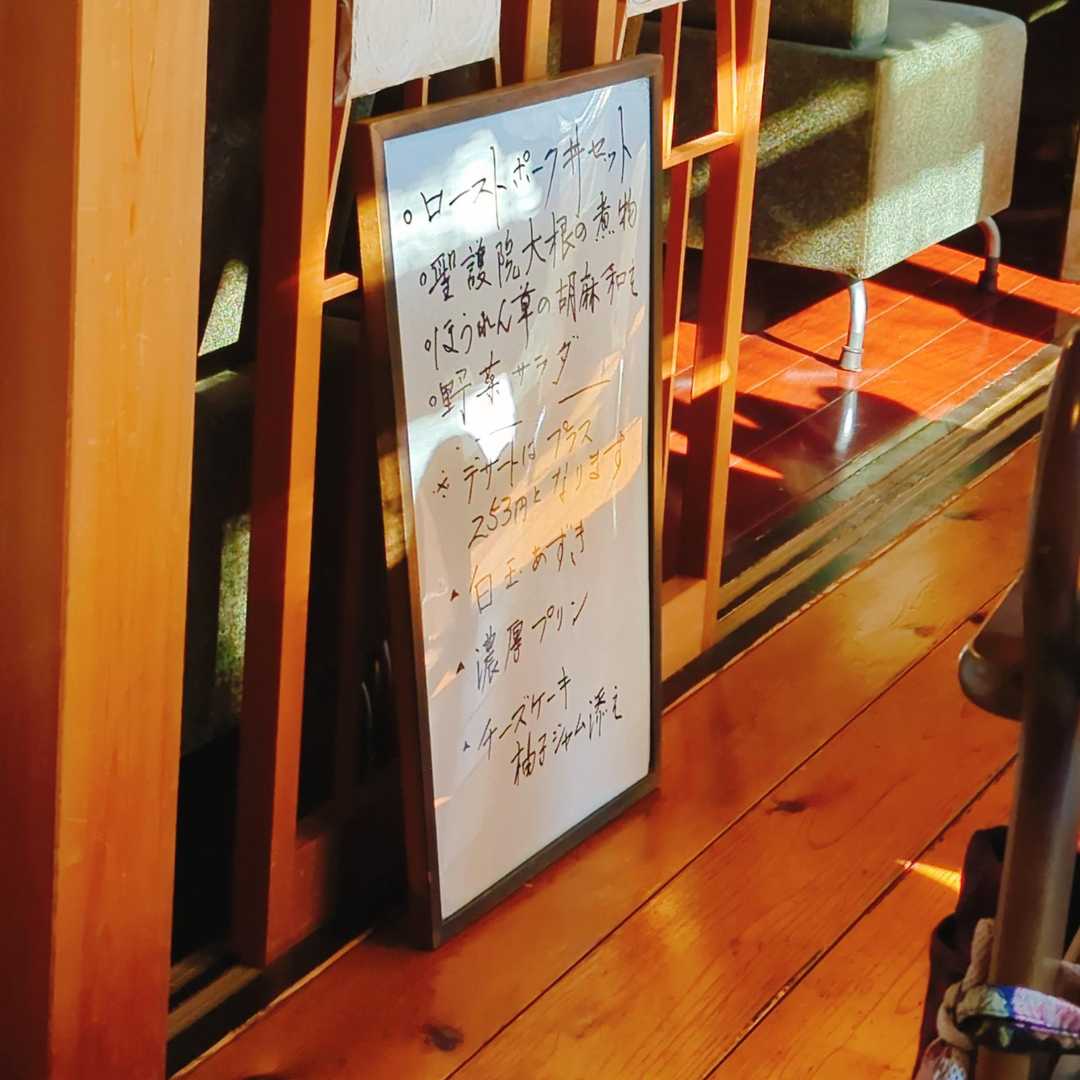 ○ローストポーク丼セット
○聖護院大根の煮物
○ほうれん草の胡麻和え
○野菜サラダ
※デザートはプラス
253円となります
▲白玉あずき
▲濃厚プリン
▲チーズケーキ
柚子ジャム添え